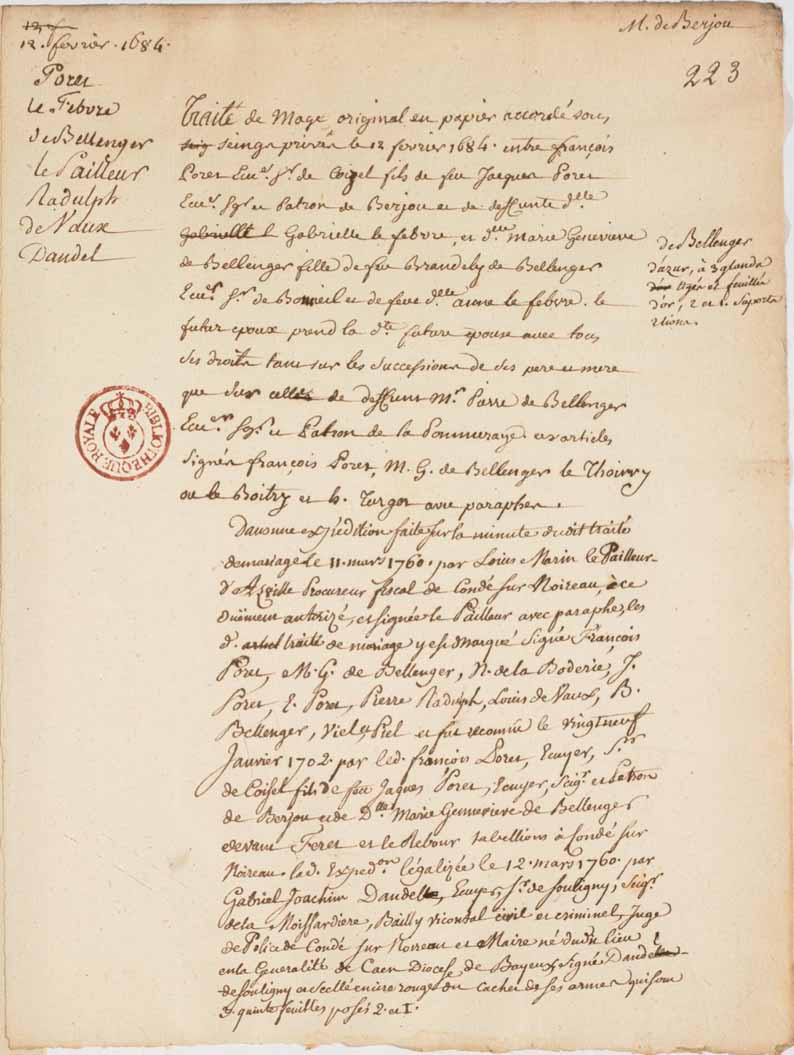 M. de Berjou
223
12. fevrier. 1684.
Poret
le Febvre
de Bellenger
le Pailleur
Radulph
de Vaux
Dandel
Traité de Mage original en papier accordé sous
seings privés le 12 fevrier 1684. entre françois
Poret Ecuer. Sr. de Coisel fils de feu Jacques Poret
Ecuer. Sgr. et Patron de Berjou et de deffunte dlle
Gabrielle le febvre, et dlle Marie Genevieve
de Bellenger fille de feu Brandely de Bellenger
Ecuer. Sr. de Bonneil et de feue dlle anne le febvre. le
futur epoux prend la dte future epouse avec tous
ses droits tant sur les successions de ses pere et mere
que sur celle de deffunt Mr. Pierre de Bellenger
Ecuer. Sgr. et Patron de la Pommeraye. ces articles
signés françois Poret, M. G. de Bellenger le Thoirry
ou le Boitry et h. Turgot avec paraphes.
de Bellenger
d'azur, à 3 glands
tigés et feuillés
d'or, 2 et 1. Suports
2 lions.
BIBLIOTHEQUE ROYALE
Dans une expedition faite sur la minute dudit traité
de mariage le 11. mars 1760. par Louis Marin le Pailleur
Procureur fiscal de Condé sur Noireau, à ce
Duëment autorizé, et signée le Pailleur avec paraphe, les
d. traité de mariage y est Marqué signé François
Poret, M. G. de Bellenger, N. de la Boderie, J.
Poret, E. Poret, Pierre Radulph, Louis de Vaux, B.
Bellenger, Viel et Piel et fut reconnu le vingt neuf
Janvier 1702. par led. françois Poret, Ecuyer, Sr.
de Coisel fils de feu Jaques Poret, Ecuyer, Seigr. et Patron
de Berjou et de Dlle Marie Gennevieve de Bellenger
devant Feret et le Rebour tabellions à Condé sur
Noireau. led. Expedon. légalizée le 12. mars 1760. par
Gabriel Joachim Dandel, Ecuyer, Sr. de Souligny, Seigr.
de la Moissardiere, Bailly vicontal civil et criminel, Juge
de Police de Condé sur Noireau et Maire né dudit lieu
en la Generalité de Caen Diocese de Bayeux, signé Dandel
de Souligny et scellé en cire rouge du cachet de ses armes qui sont
3. quinte feuilles posés 2. et 1.